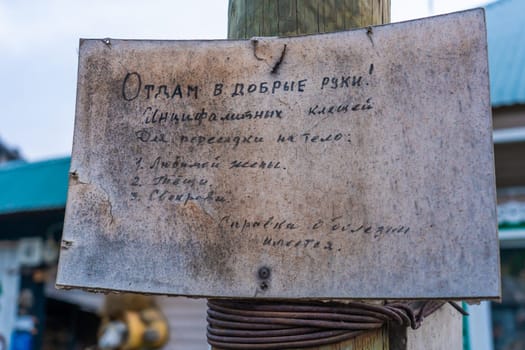 Отдам в добрые руки!
Инцифалитных клещей
Для пересадки на тело:
1. Любимой жены.
2. Тёщи.
3. Свекрови.
Справка о болезни
имеется.